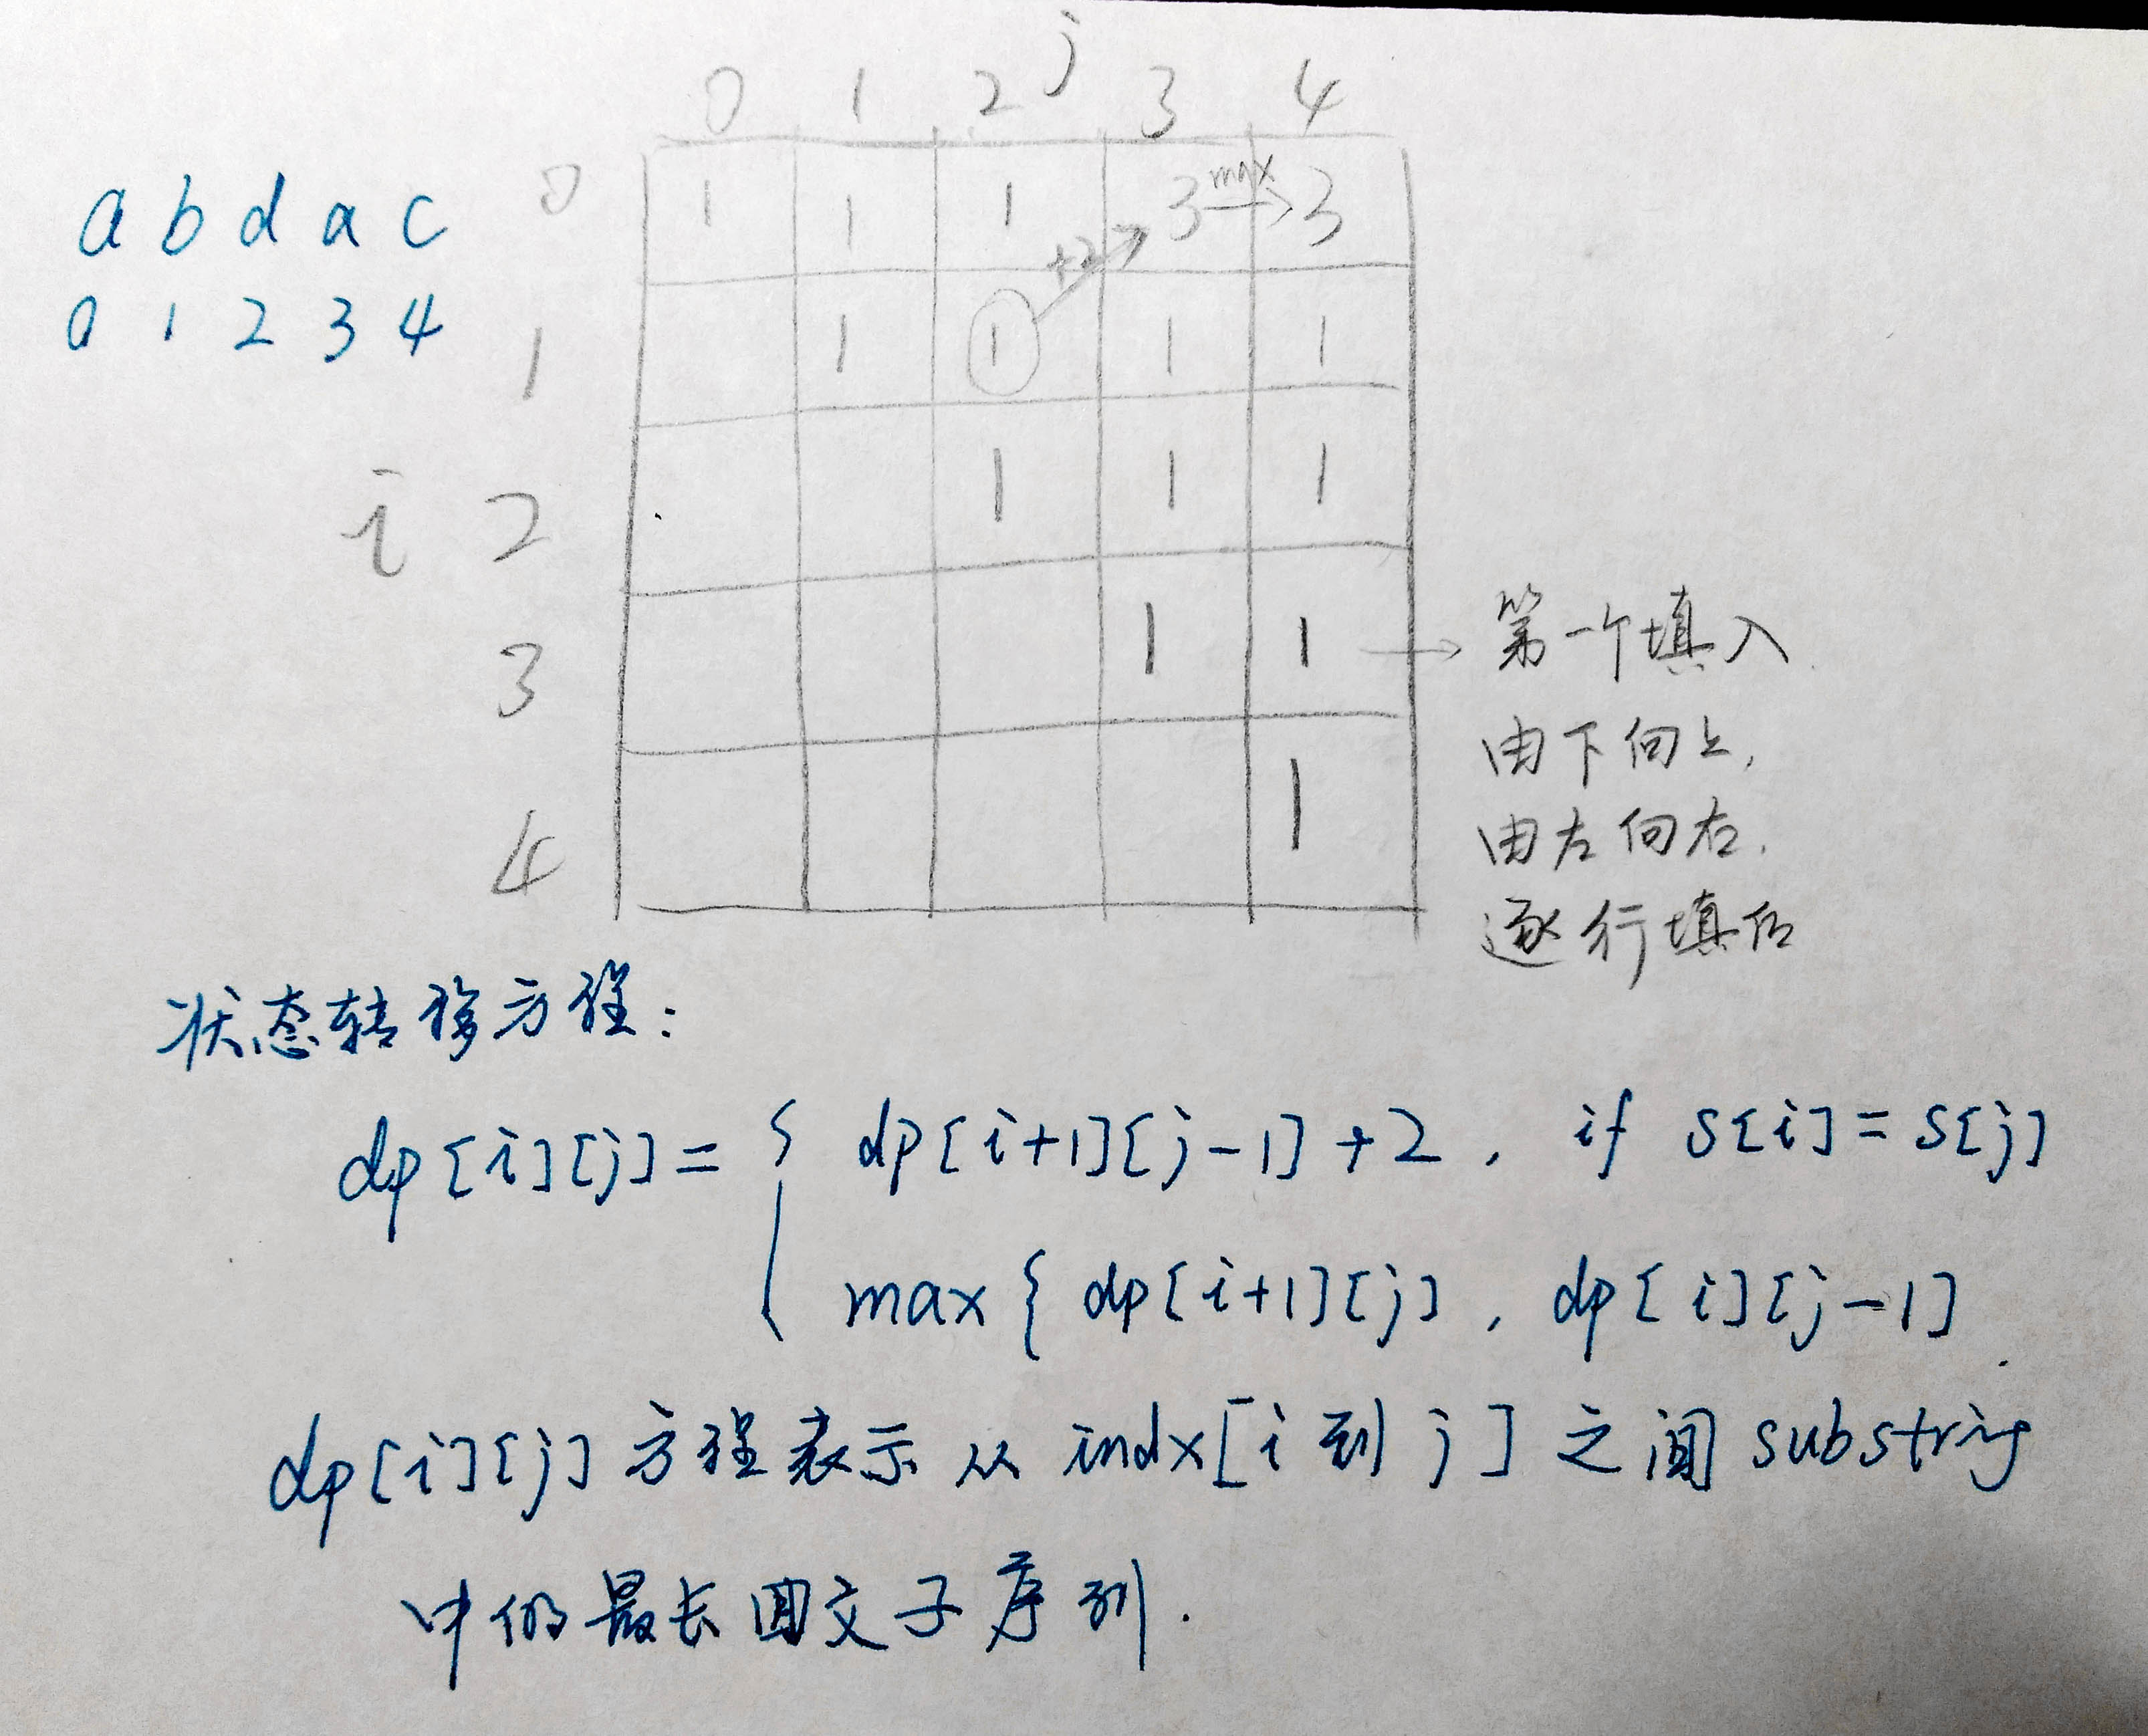 j
0 1 2 3 4
a b d a c
0 1 2 3 4
0 1 1 1 3 max 3
+2
1 1 1 1 1
i 2 1 1 1
3 1 1 → 第一个填入.
由下向上,
由左向右.
4 1
逐行填
状态转移方程:
dp[i][j] = { dp[i+1][j-1] + 2 , if s[i] = s[j]
max { dp[i+1][j] , dp[i][j-1]
dp[i][j] 方程表示 从 indx[i 到 j] 之间 substring
中的最长回文子序列.